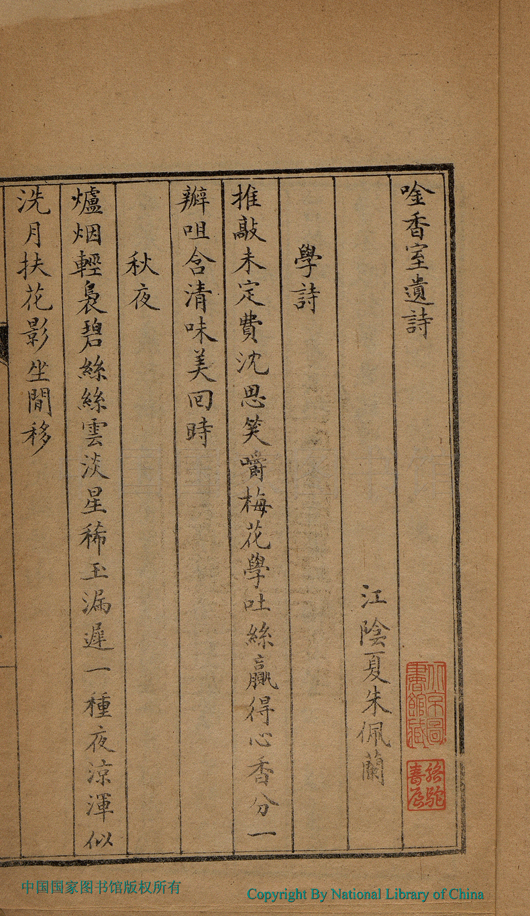 唫香室遺詩
江陰夏朱佩蘭
學詩
推敲未定費沈思笑嚼梅花學吐絲贏得心香分一
瓣咀含清味美回時
秋夜
爐烟輕裊碧絲絲雲淡星稀玉漏遲一種夜涼渾似
洗月扶花影坐間移
中国国家图书馆版权所有
Copyright By National Library of China